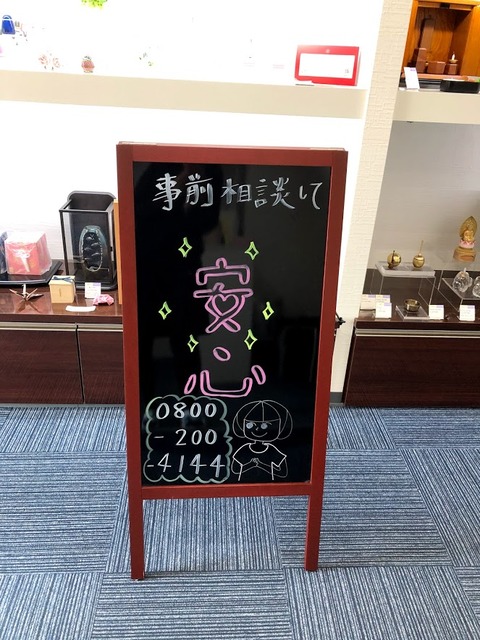 事前相談して
安
心
0800
- 200
-4144